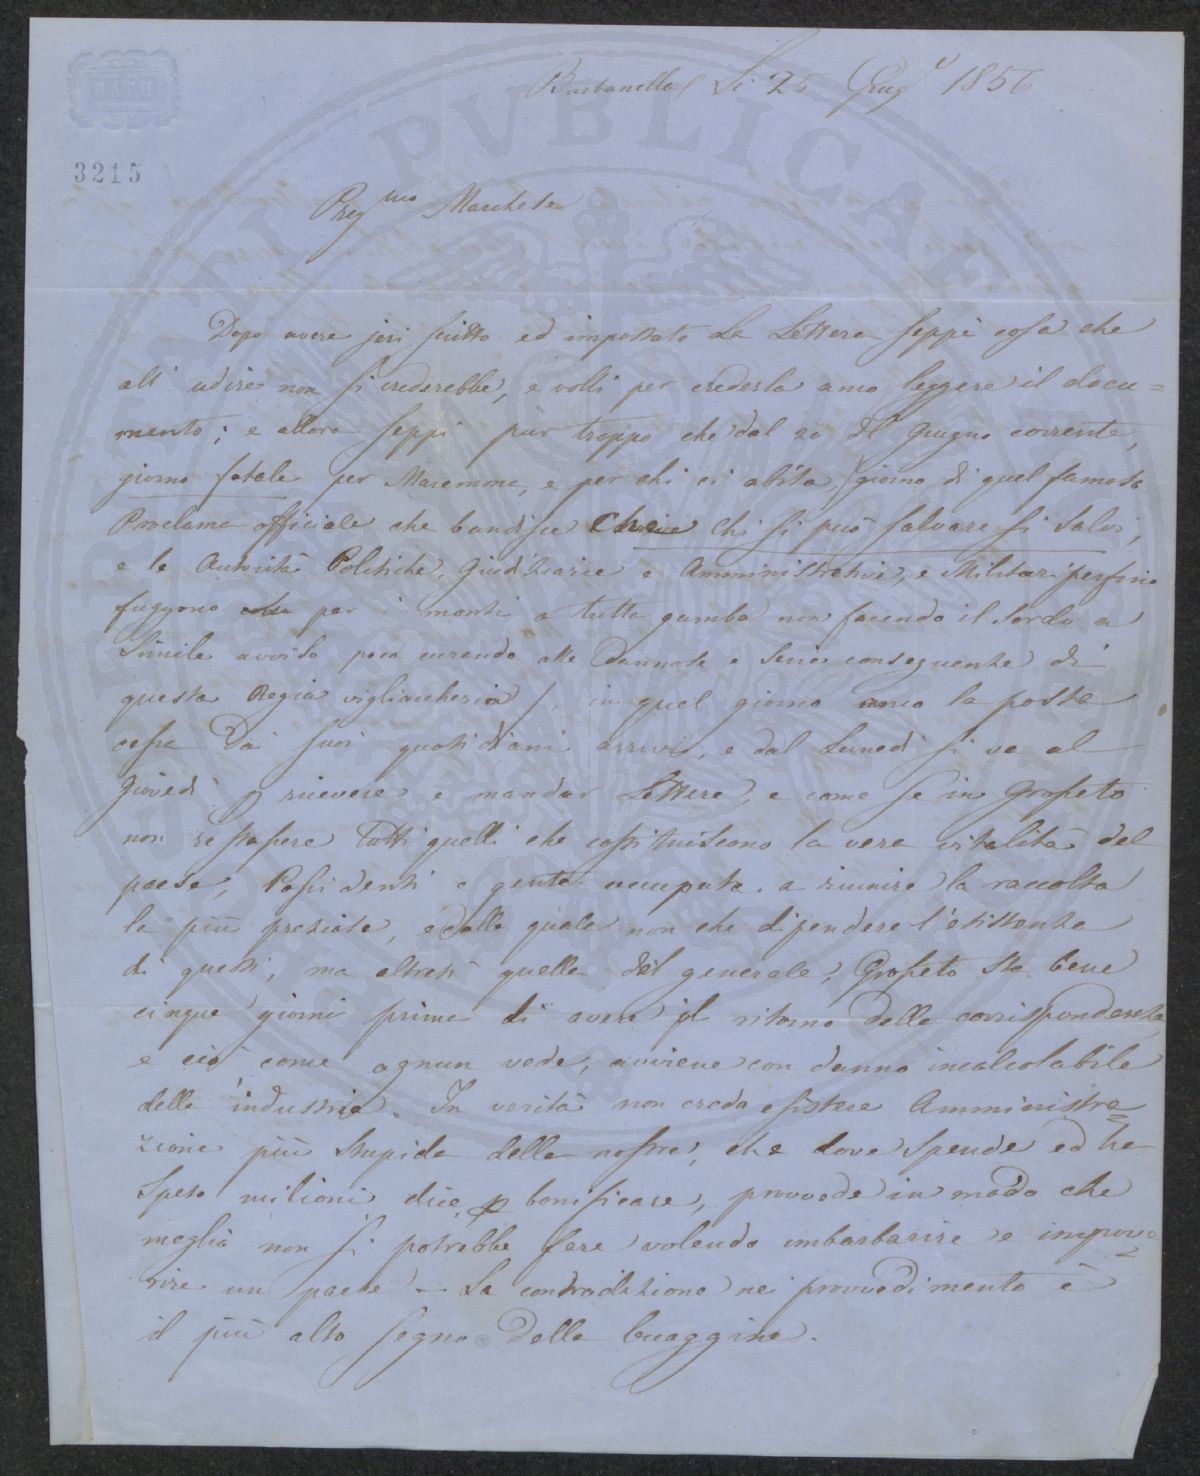 BATH
3215
Barbanella Li 25 Giugᵉ 1856
Pregᵐᵒ Marchese
Dopo avere jeri scritto ed impostato La Lettera seppi cosa che
all' udire non si crederebbe, e volli per crederla amo leggere il docu=
mento; e allora seppi pur troppo che dal 20 di Giugno corrente,
giorno fatale per Maremma, e per chi ci abita (giorno di quel famoso
Proclama officiale che bandisce che chi si può salvare si salvi,
e le Autorità Politiche, Giudiziarie e Amministrative, e Militari perfino
fuggono per i monti a tutta gamba non facendo il sordo a
Simile avviso poco curando alle dannose e serie conseguenze di
questa Regia vigliaccheria), in quel giorno la posta
cessa Dai suoi quotidiani arrivi, e dal Lunedì si va al
Giovedì p ricevere e mandar Lettere, e come se in Grosseto
non restassero Tutti quelli che costituiscono la vera vitalità del
paese, Possidenti e gente occupata a riunire la raccolta
la più preziosa, e dalla quale non che dipendere l'esistenza
di questi, ma altresì quella del generale, Grosseto sta bene
cinque giorni prima di avere il ritorno della corrispondenza
e ciò come ognun vede, avviene con danno incalcolabile
della industria. In verità non credo esistere Amministra=
zione più stupida della nostra, che dove spende ed ha
speso milioni dice p bonificare, provvede in modo che
meglio non si potrebbe fare volendo imbarbarire e impove=
rire un paese — La contradizione nei provvedimento è
il più alto segno della buaggine.